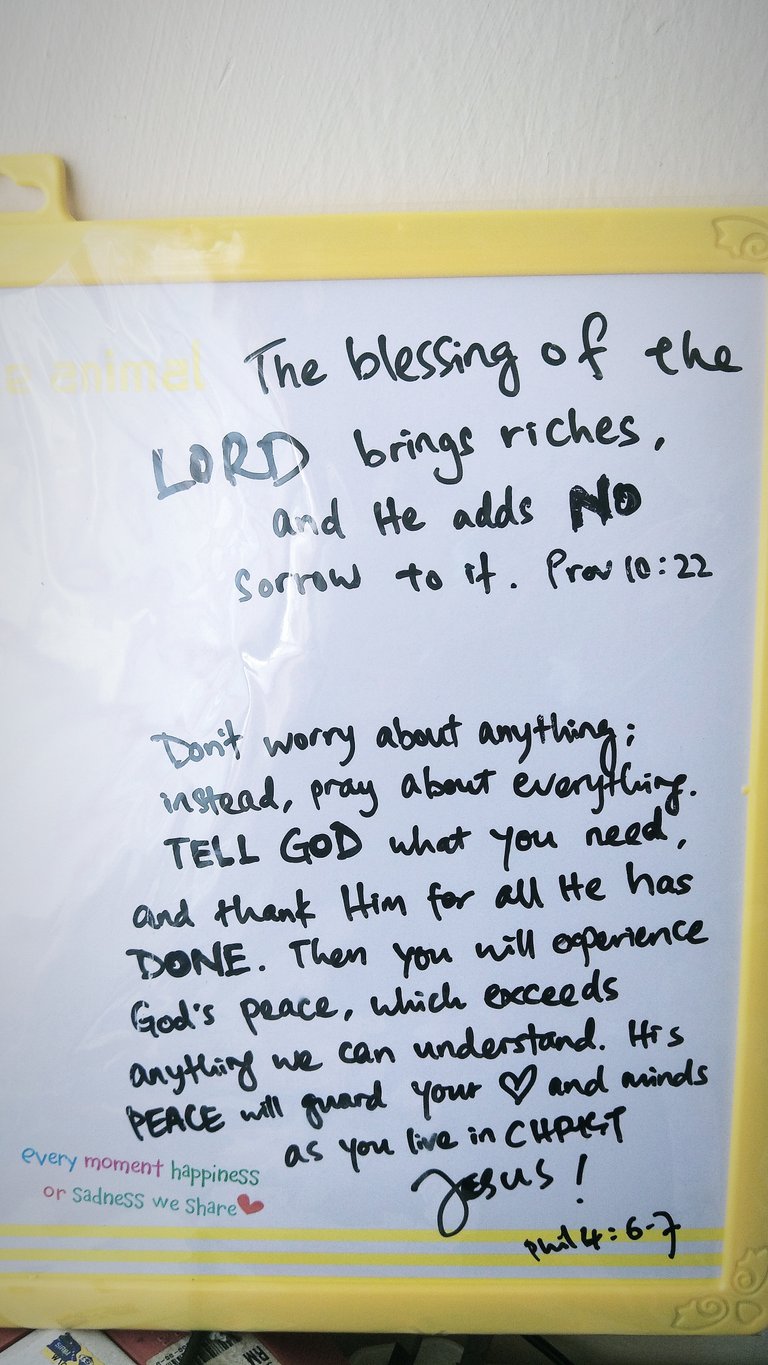 animal
The blessing of the
LORD brings riches,
and He adds NO
sorrow to it. Prov 10:22
Don't worry about anything;
instead, pray about everything.
TELL GOD what you need,
and thank Him for all He has
DONE. Then you will experience
God's peace, which exceeds
anything we can understand. His
PEACE will guard your ♡ and minds
as you live in CHRIST
JESUS!
Phil 4:6-7
every moment happiness
or sadness we share